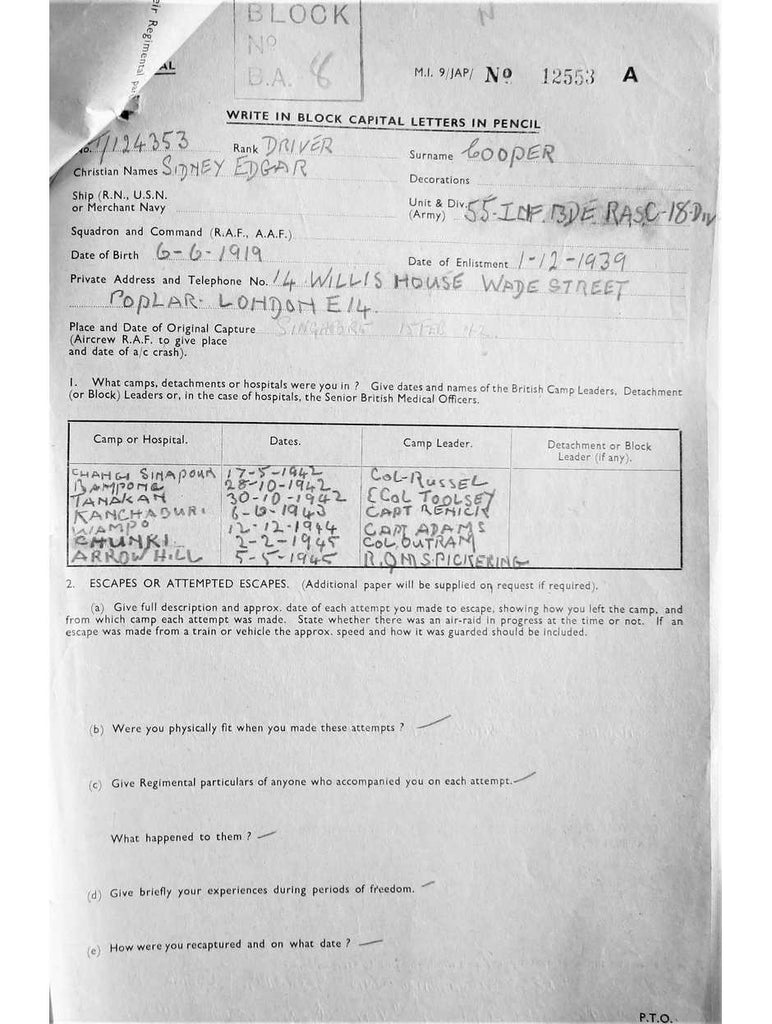 eir Regimental pa
AL
BLOCK
Nº
B.A. 8
N
M.I. 9/JAP/ Nº 12553 A
WRITE IN BLOCK CAPITAL LETTERS IN PENCIL
No. T/124353 Rank DRIVER Surname COOPER
Christian Names SIDNEY EDGAR Decorations
Ship (R.N., U.S.N. or Merchant Navy Unit & Div. (Army) 55-INF. BDE RASC-18-DIV
Squadron and Command (R.A.F., A.A.F.)
Date of Birth 6-6-1919 Date of Enlistment 1-12-1939
Private Address and Telephone No. 14 WILLIS HOUSE WADE STREET
POPLAR- LONDON E14.
Place and Date of Original Capture SINGAPORE 15 FEB 42
(Aircrew R.A.F. to give place
and date of a/c crash).
1. What camps, detachments or hospitals were you in ? Give dates and names of the British Camp Leaders, Detachment
(or Block) Leaders or, in the case of hospitals, the Senior British Medical Officers.
Camp or Hospital. Dates. Camp Leader. Detachment or Block Leader (if any).
CHANGI SINAPOUR 17-5-1942 COL-RUSSEL
BAMPONG 28-10-1942
TANAKAN 30-10-1942 COL TOOLSEY
KANCHABURI 6-6-1943 CAPT RENICK
WAMPO 12-12-1944 CAPT ADAMS
CHUNKI 2-2-1945 COL. OUTRAM
ARROW HILL 5-5-1945 R.Q.M.S. PICKERING
2. ESCAPES OR ATTEMPTED ESCAPES. (Additional paper will be supplied on request if required).
(a) Give full description and approx. date of each attempt you made to escape, showing how you left the camp, and
from which camp each attempt was made. State whether there was an air-raid in progress at the time or not. If an
escape was made from a train or vehicle the approx. speed and how it was guarded should be included.
(b) Were you physically fit when you made these attempts ?
(c) Give Regimental particulars of anyone who accompanied you on each attempt.
What happened to them ?
(d) Give briefly your experiences during periods of freedom.
(e) How were you recaptured and on what date ?
P.T.O.